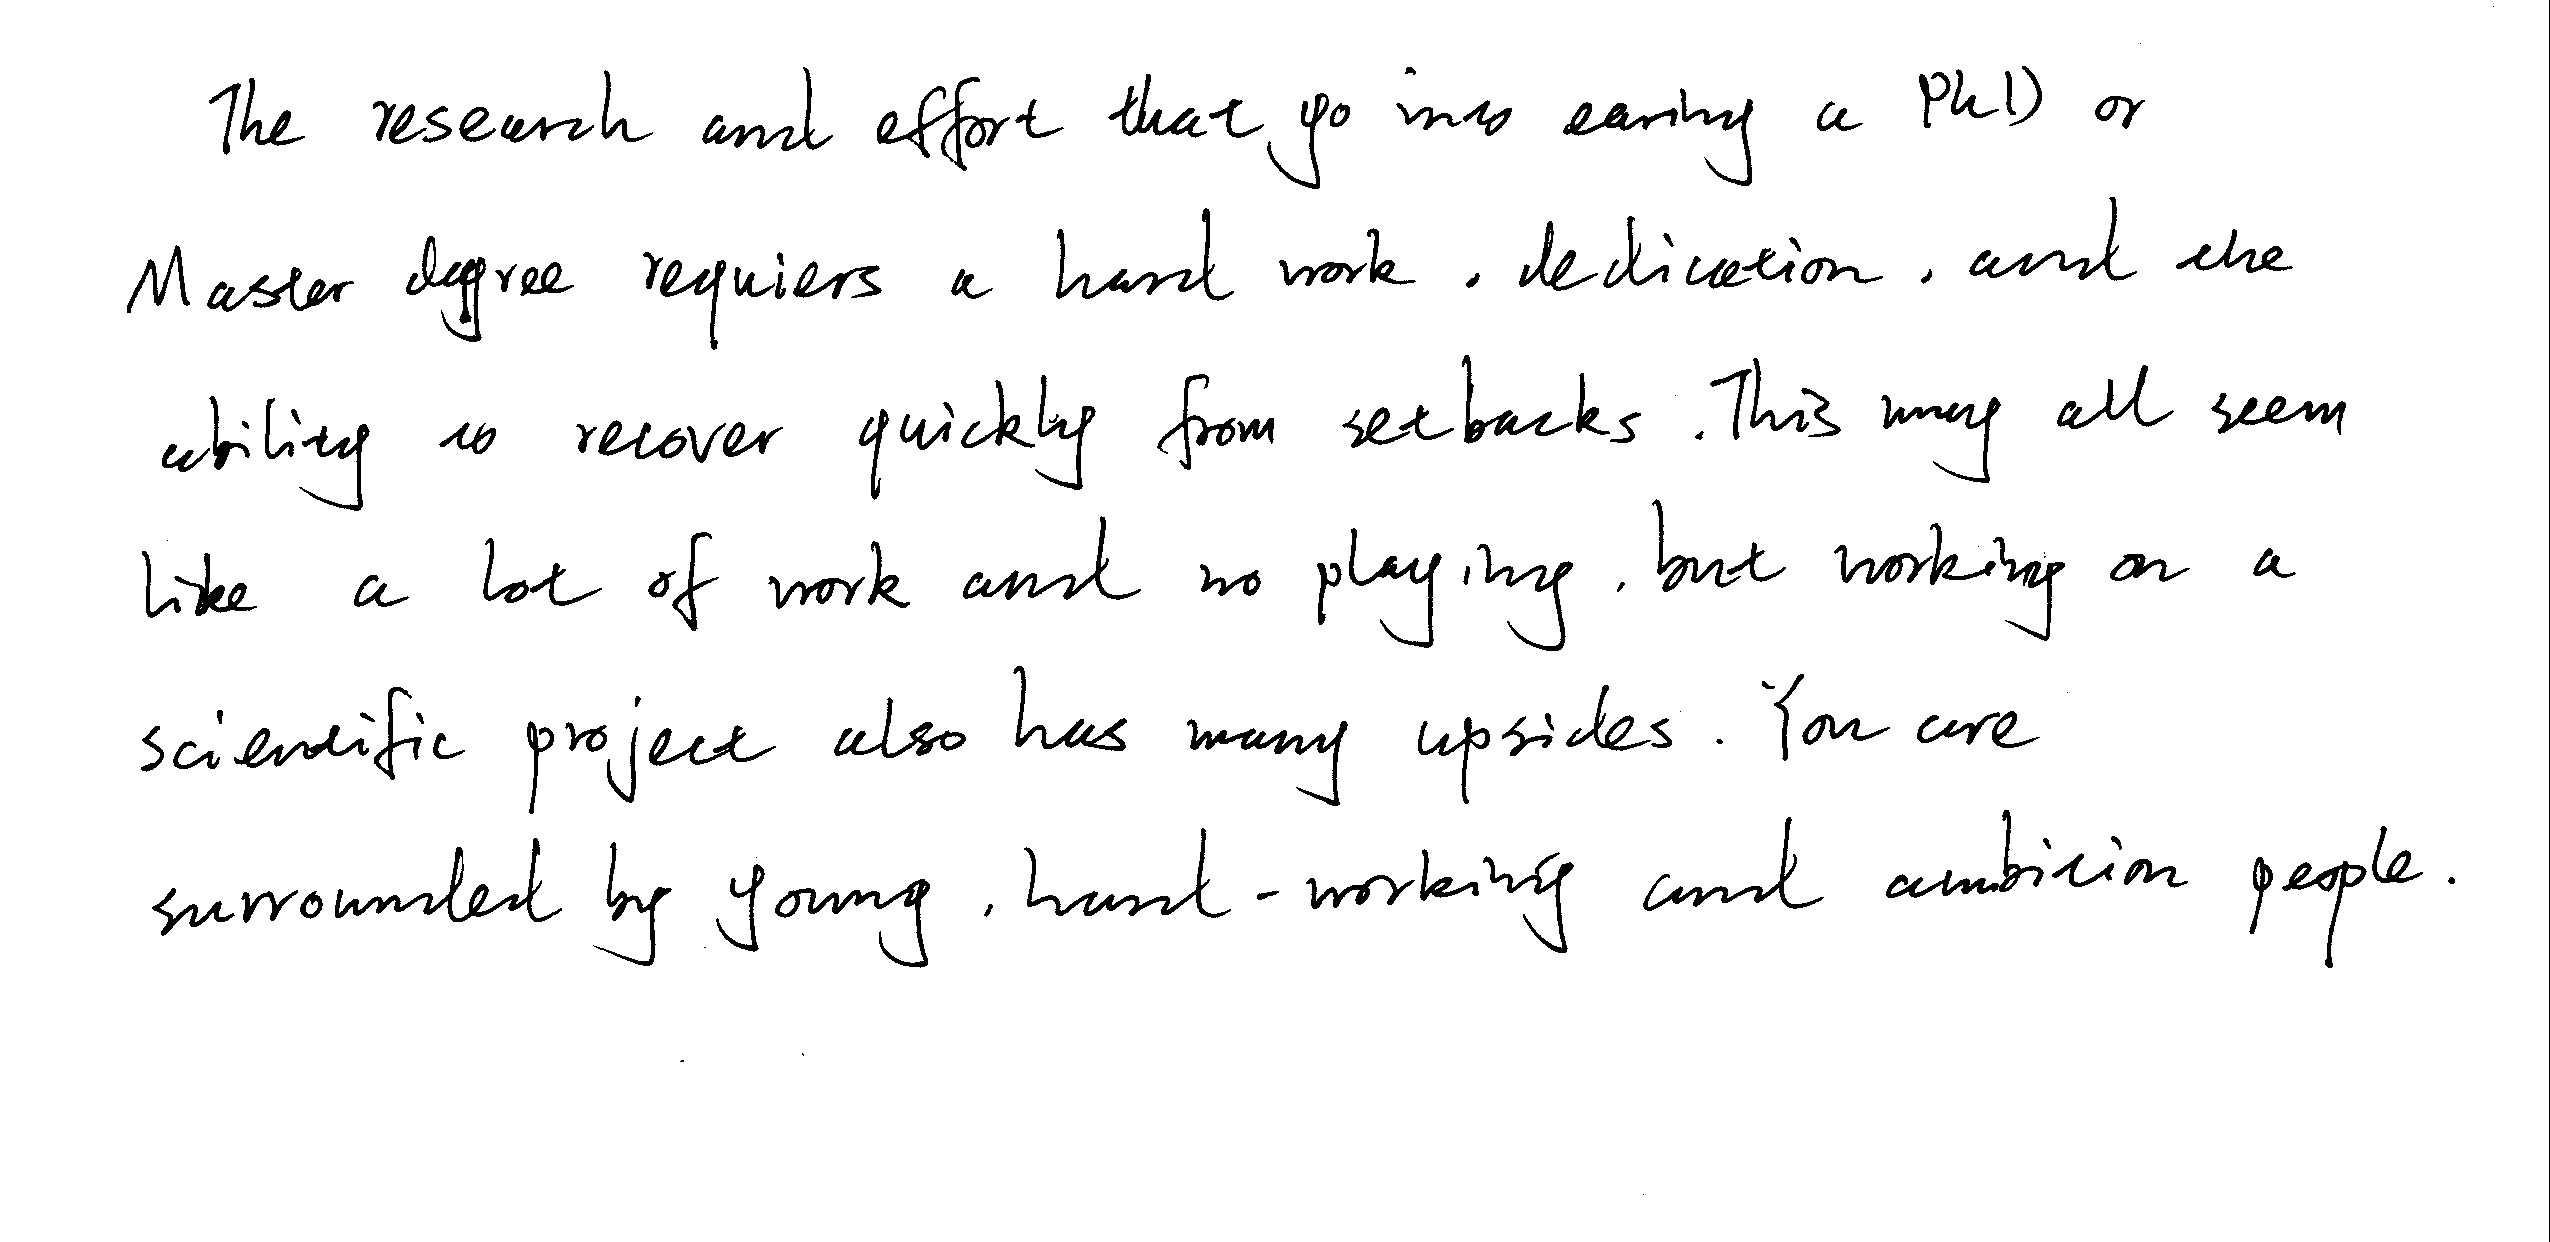 The research and effort that go into earing a PhD or
Master degree requiers a hard work, dedication, and the
ability to recover quickly from setbacks. This may all seem
like a lot of work and no playing, but working on a
scientific project also has many upsides. You are
surrounded by young, hard-working and ambition people.